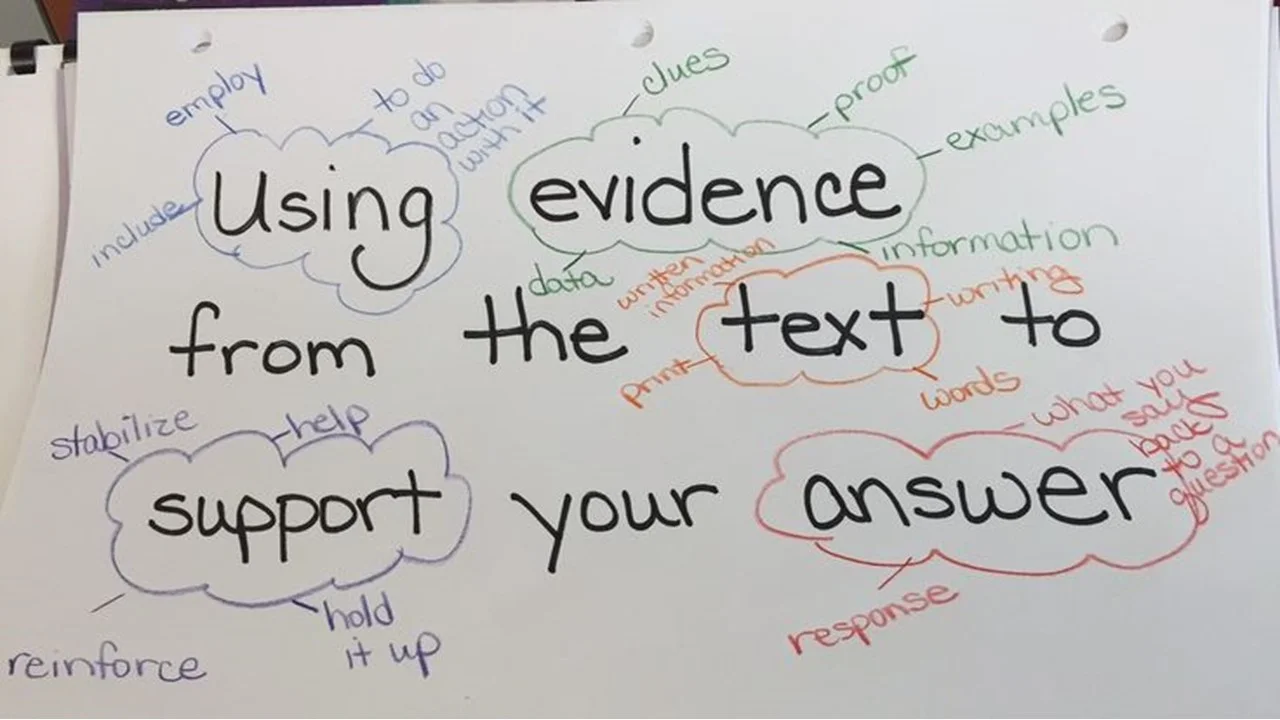 employ
to do
an
action
with it
include
clues
proof
examples
Using evidence
data
information
written
information
writing
print
words
from the text to
stabilize
help
what you
say
back
to a
question
support your answer
reinforce
hold
it up
response